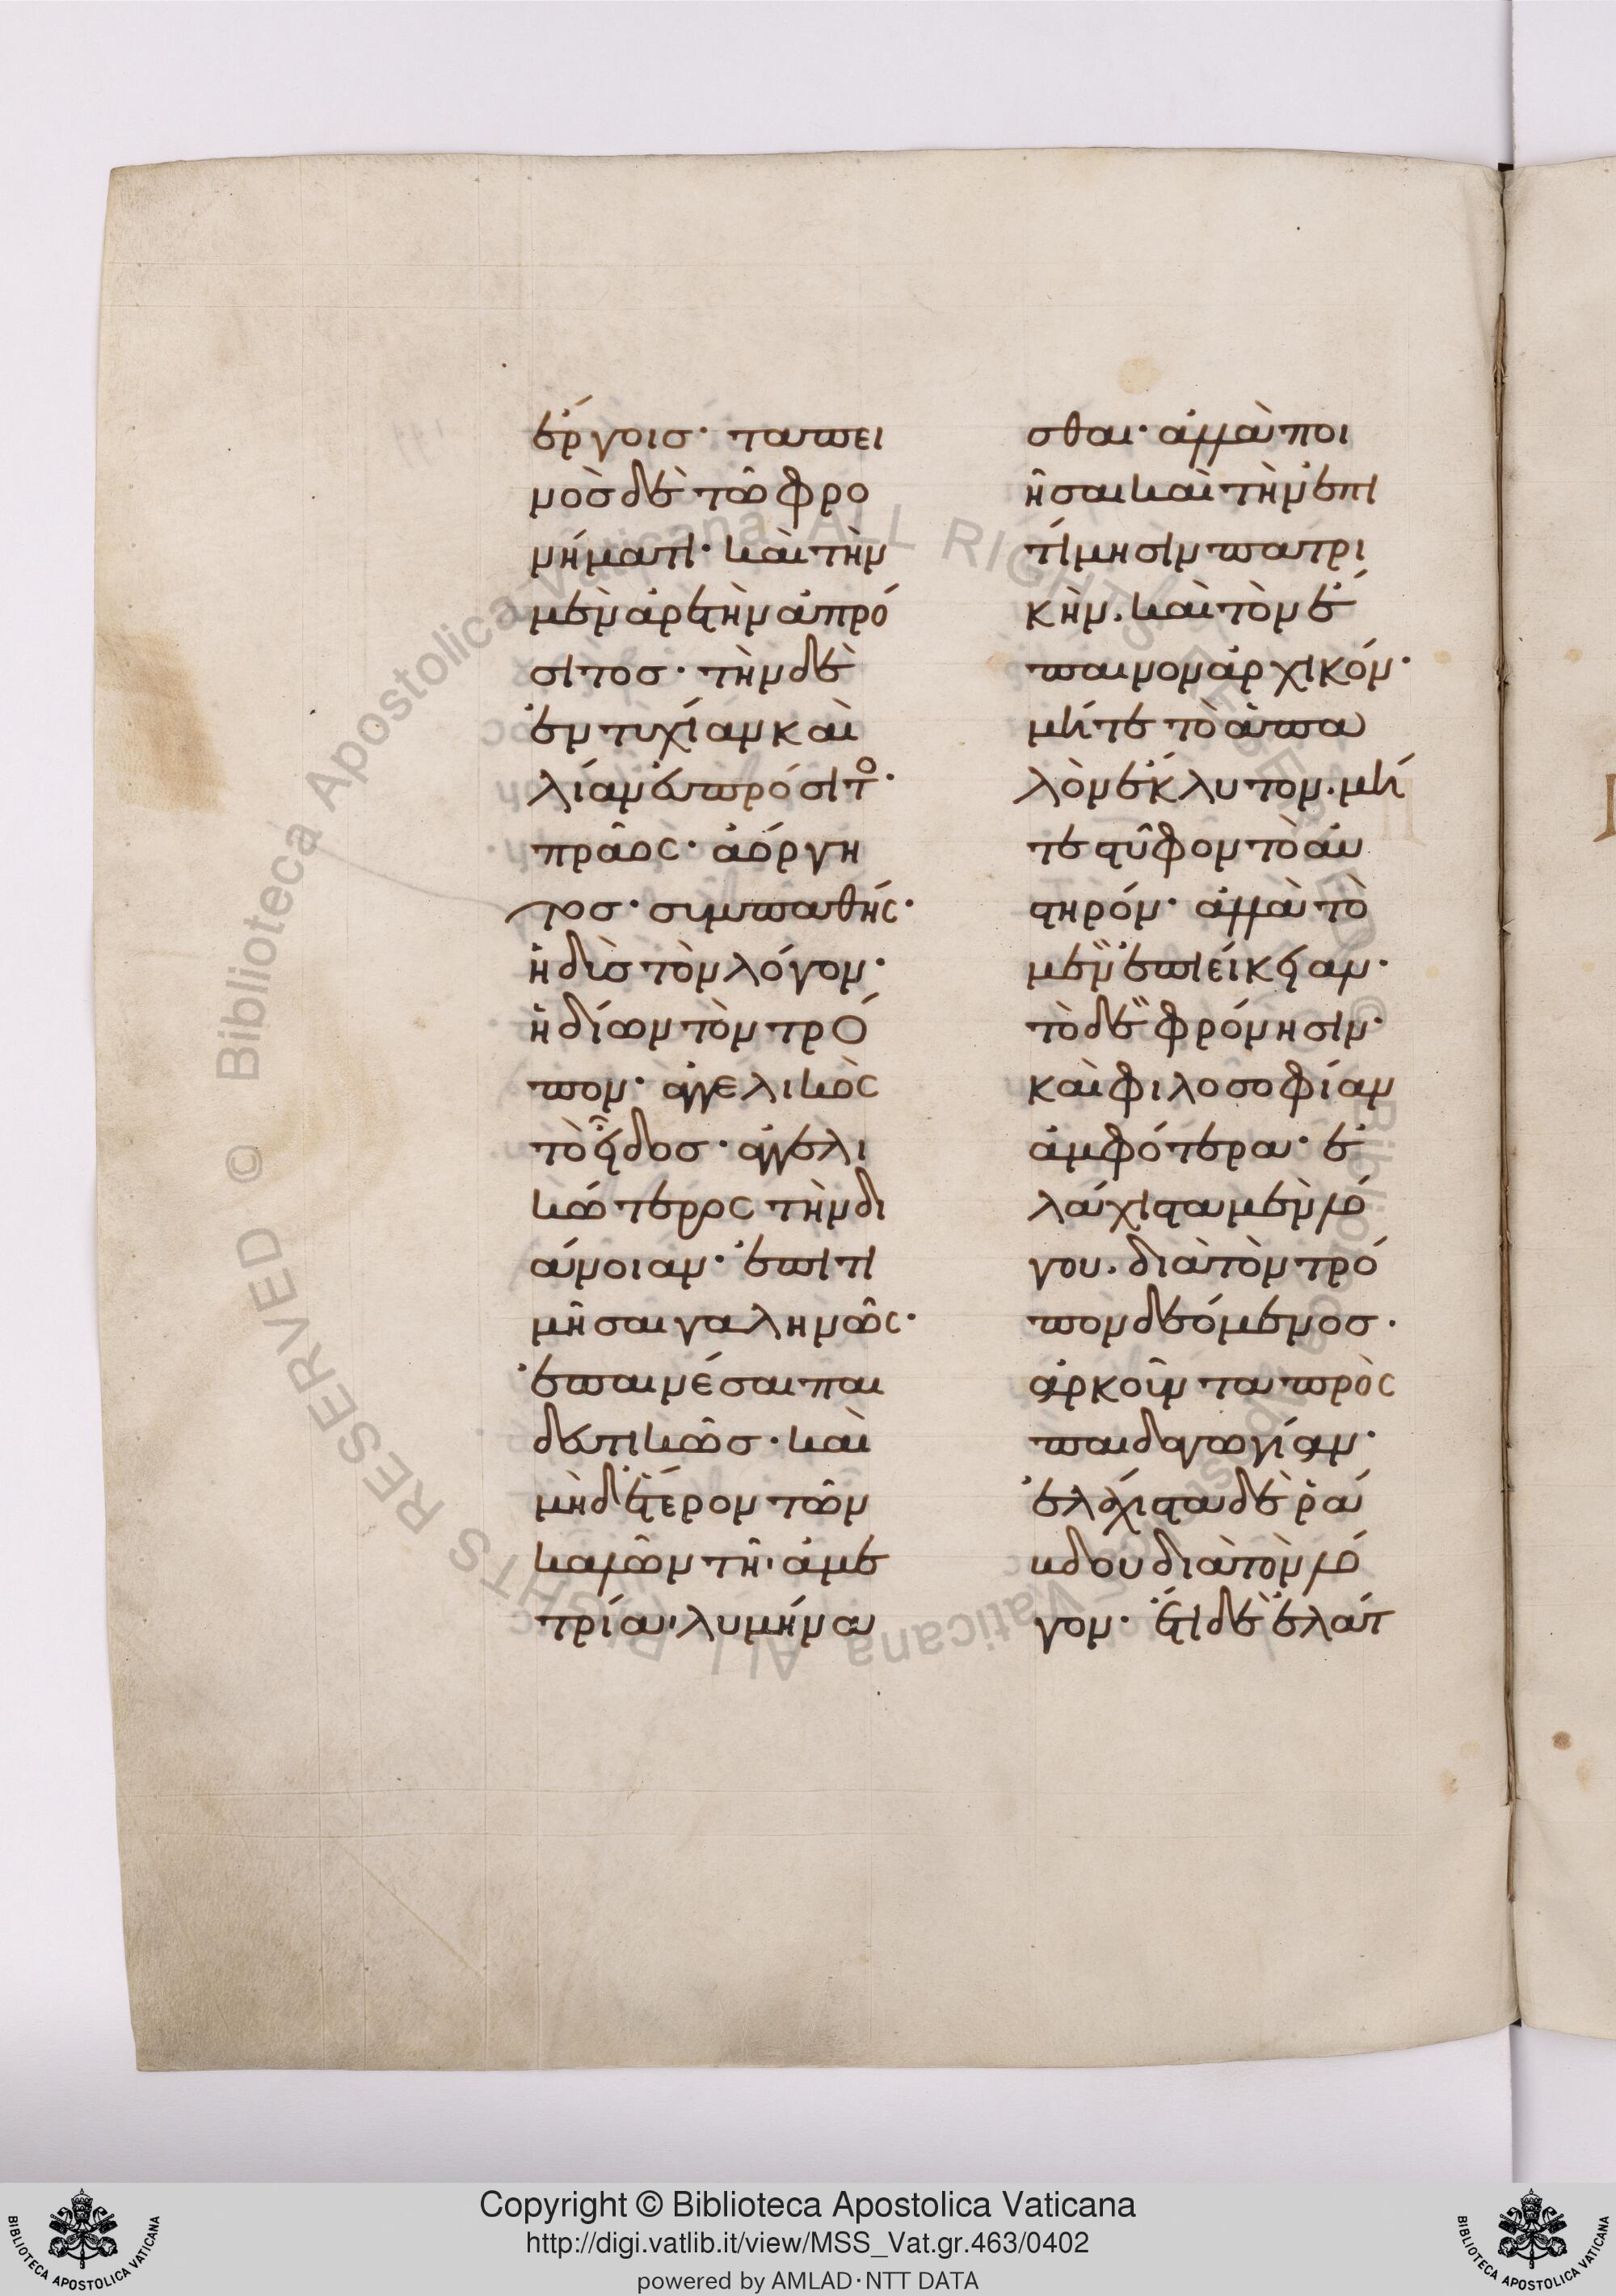 ἔργοισ· ταπει
νὸσ δὲ τῶ φρο
νήματι· καὶ τὴν
μὲν ἀρετὴν ἀπρό
σιτοσ· τὴν δὲ
ἐντυχίαν καὶ
λίαν εὐπρόσιτο·
πρᾶος· ἀόργη
τοσ· συμπαθής·
ἡδὺσ τὸν λόγον·
ἡδίων τὸν τρό
πον· ἀγγελικὸς
τὸ εἶδοσ· ἀγγελι
κώτερος τὴν δι
άνοιαν· ἐπιτι
μῆσαι γαληνῶς·
ἐπαινέσαι παι
δευτικῶσ· καὶ
μὴδ ἕτερον τῶν
καλῶν τῆι ἀμε
τρίαι λυμήνα
σθαι· ἀλλὰ ποι
ῆσαι καὶ τὴν ἐπι
τίμησιν πατρι
κὴν. καὶ τὸν ἔ
παινον ἀρχικόν·
μήτε τὸ ἁπα
λὸν ἔκλυτον. μή
τε στῦφον τὸ αὐ
στηρόν· ἀλλὰ τὸ
μὲν ἐπιείκειαν·
τὸ δὲ φρόνησιν·
καὶ φιλοσοφίαν
ἀμφότερα· ἐ
λάχιστα μὲν λό
γου. διὰ τὸν τρό
πον δεόμενοσ.
ἀρκοῦντα πρὸς
παιδαγωγίαν·
ἐλάχιστα δὲ ῥά
βδου διὰ τὸν λό
γον· ἔτι δὲ ἐλάτ
Copyright © Biblioteca Apostolica Vaticana
http://digi.vatlib.it/view/MSS_Vat.gr.463/0402
powered by AMLAD·NTT DATA
BIBLIOTECA APOSTOLICA VATICANA
BIBLIOTECA APOSTOLICA VATICANA
© Biblioteca Apostolica Vaticana ALL RIGHTS RESERVED
© Biblioteca Apostolica Vaticana ALL RIGHTS RESERVED